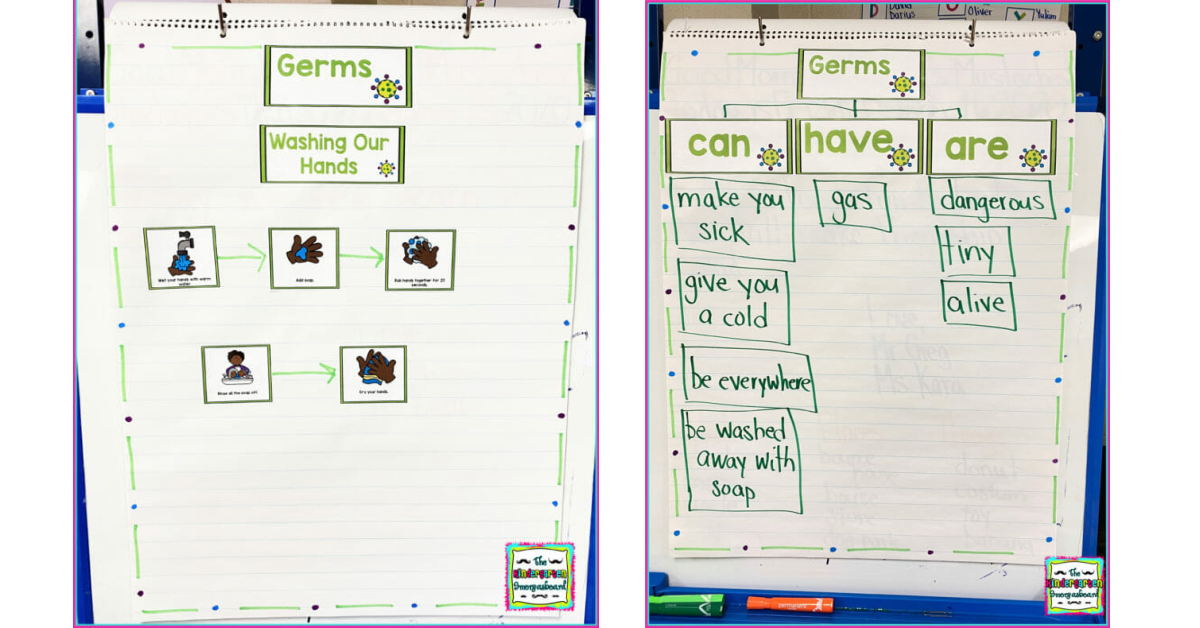 Germs
Washing Our
Hands
Wet your hands with warm
water.
Add soap.
Rub hands together for 20
seconds.
Rinse all the soap off.
Dry your hands.
The
Kindergarten
Smorgasboard
Darius
Oliver
Yulian
Germs
can
have
are
make you
sick
give you
a cold
be everywhere
be washed
away with
soap
gas
dangerous
tiny
alive
Mr. Greg
Ms. Kara
donut
The
Kindergarten
Smorgasboard